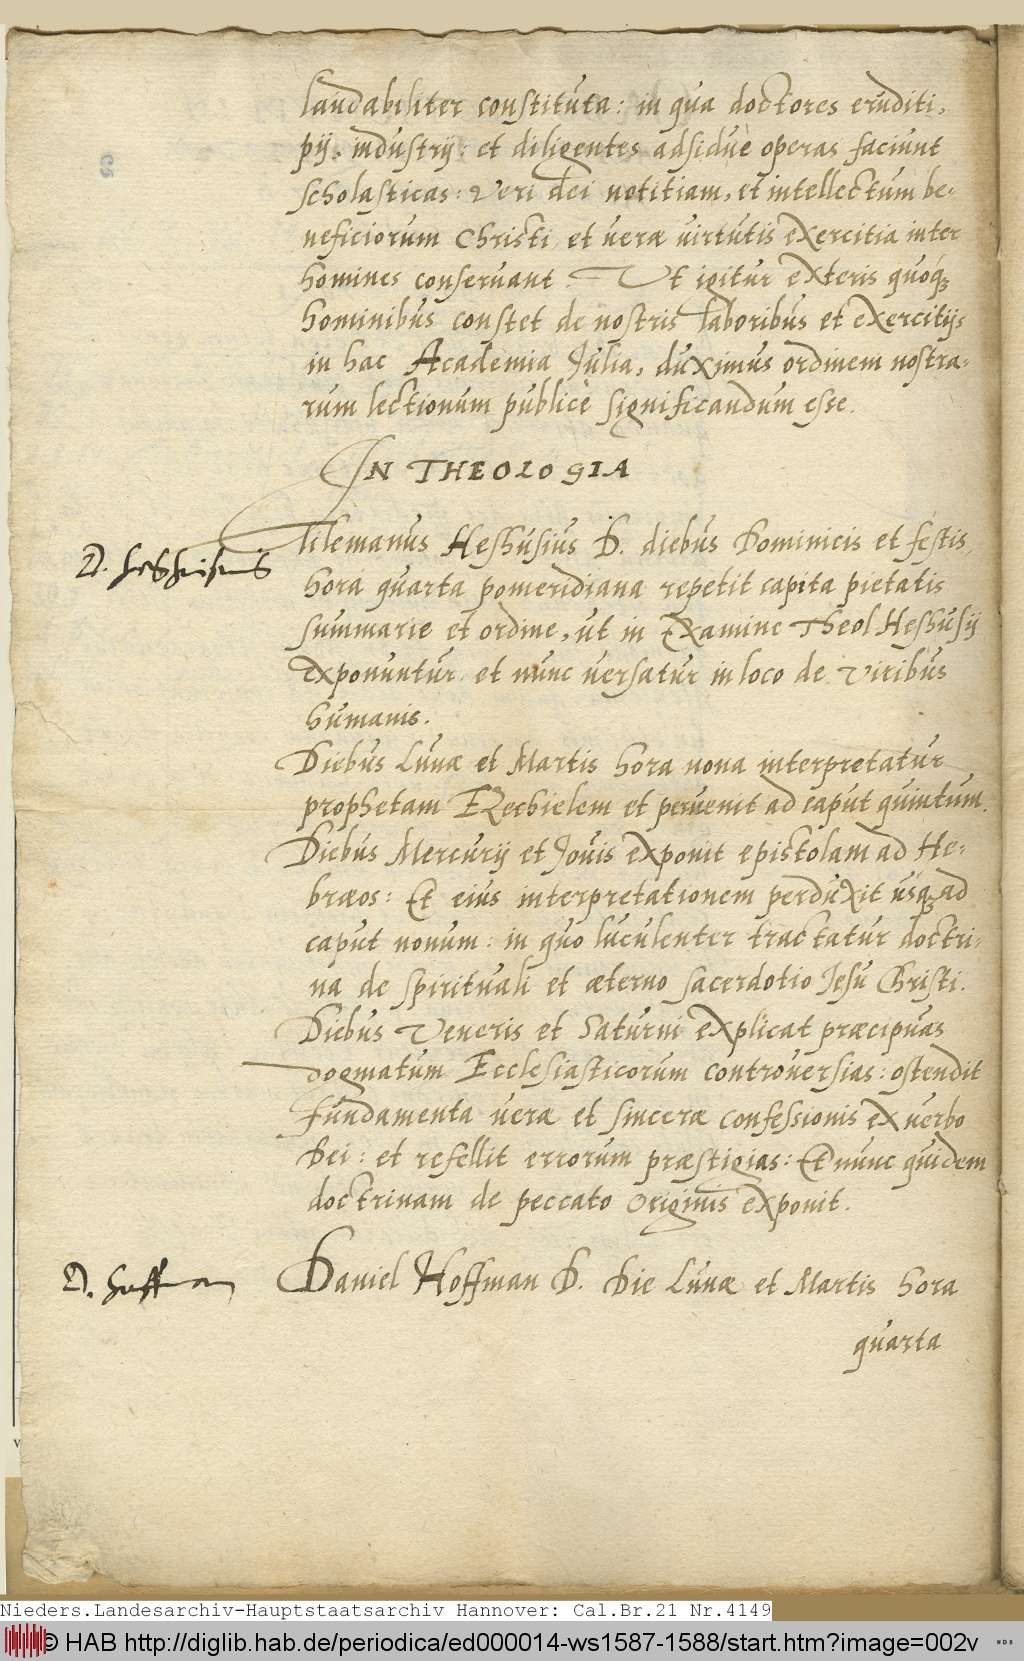 laudabiliter constituta: in qua doctores eruditi,
pij, industrij: et diligentes adsiduè operas faciunt
scholasticas: Veri dei notitiam, et intellectum be-
neficiorum Christi et veræ uirtutis exercitia inter
homines conseruant. Ut igitur exteris quoq;
hominibus constet de nostris laboribus et exercitijs
in hac Academia Julia, duximus ordinem nostra-
rum lectionum publicè significandum esse.
IN THEOLOGIA
D. Heshusius
Tilemanus Heshusius D. diebus Dominicis et festis,
hora quarta pomeridiana repetit capita pietatis
summarie et ordine, ut in Examine Theol Heshusij
exponuntur et nunc uersatur in loco de Viribus
humanis.
Diebus Lunæ et Martis hora nona interpretatur
prophetam EZechielem et peruenit ad caput quintum.
Diebus Mercurij et Jouis exponit epistolam ad He-
bræos: Et eius interpretationem perduxit usq; ad
caput nonum: in quo luculenter tractatur doctri-
na de spirituali et æterno sacerdotio Jesu Christi.
Diebus Veneris et Saturni explicat præcipuas
dogmatum Ecclesiasticorum controuersias: ostendit
fundamenta ueræ et sinceræ confessionis ex uerbo
Dei: et refellit errorum præstigias: Et nunc quidem
doctrinam de peccato Originis exponit.
D. Hoffman
Daniel Hoffman D. Die Lunæ et Martis hora
quarta
Nieders.Landesarchiv-Hauptstaatsarchiv Hannover: Cal.Br.21 Nr.4149
© HAB http://diglib.hab.de/periodica/ed000014-ws1587-1588/start.htm?image=002v